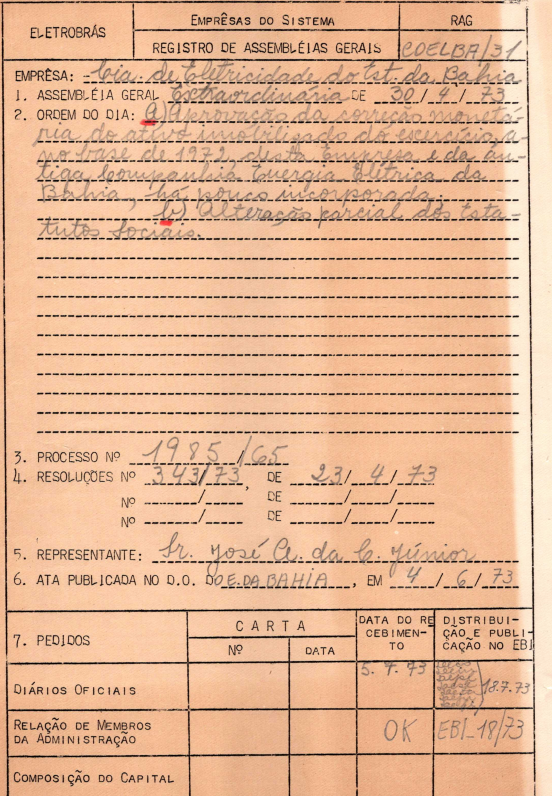 ELETROBRÁS
EMPRÊSAS DO SISTEMA
RAG
REGISTRO DE ASSEMBLÉIAS GERAIS
COELBA/31
EMPRÊSA: Cia. de Eletricidade do Est. da Bahia
1. ASSEMBLÉIA GERAL Extraordinária DE 30/4/73
2. ORDEM DO DIA: a) Aprovação da correção monetá-
ria do ativo imobilizado do exercício, a-
no base de 1972, desta Emprêsa e da an-
tiga Companhia Energia Elétrica da
Bahia, há pouco incorporada;
b) Alteração parcial dos Esta-
tutos Sociais.
3. PROCESSO Nº 1985/65
4. RESOLUÇÕES Nº 343/73, DE 23/4/73
Nº / DE / /
Nº / DE / /
5. REPRESENTANTE: Sr. José C. da C. Júnior
6. ATA PUBLICADA NO D.O. DO E. DA BAHIA, EM 4/6/73
7. PEDIDOS
CARTA
Nº
DATA
DATA DO RE
CEBIMEN-
TO
DISTRIBUI-
ÇÃO E PUBLI-
CAÇÃO NO EBI
DIÁRIOS OFICIAIS
5.7.73
18.7.73
RELAÇÃO DE MEMBROS
DA ADMINISTRAÇÃO
OK
EBI_18/73
COMPOSIÇÃO DO CAPITAL